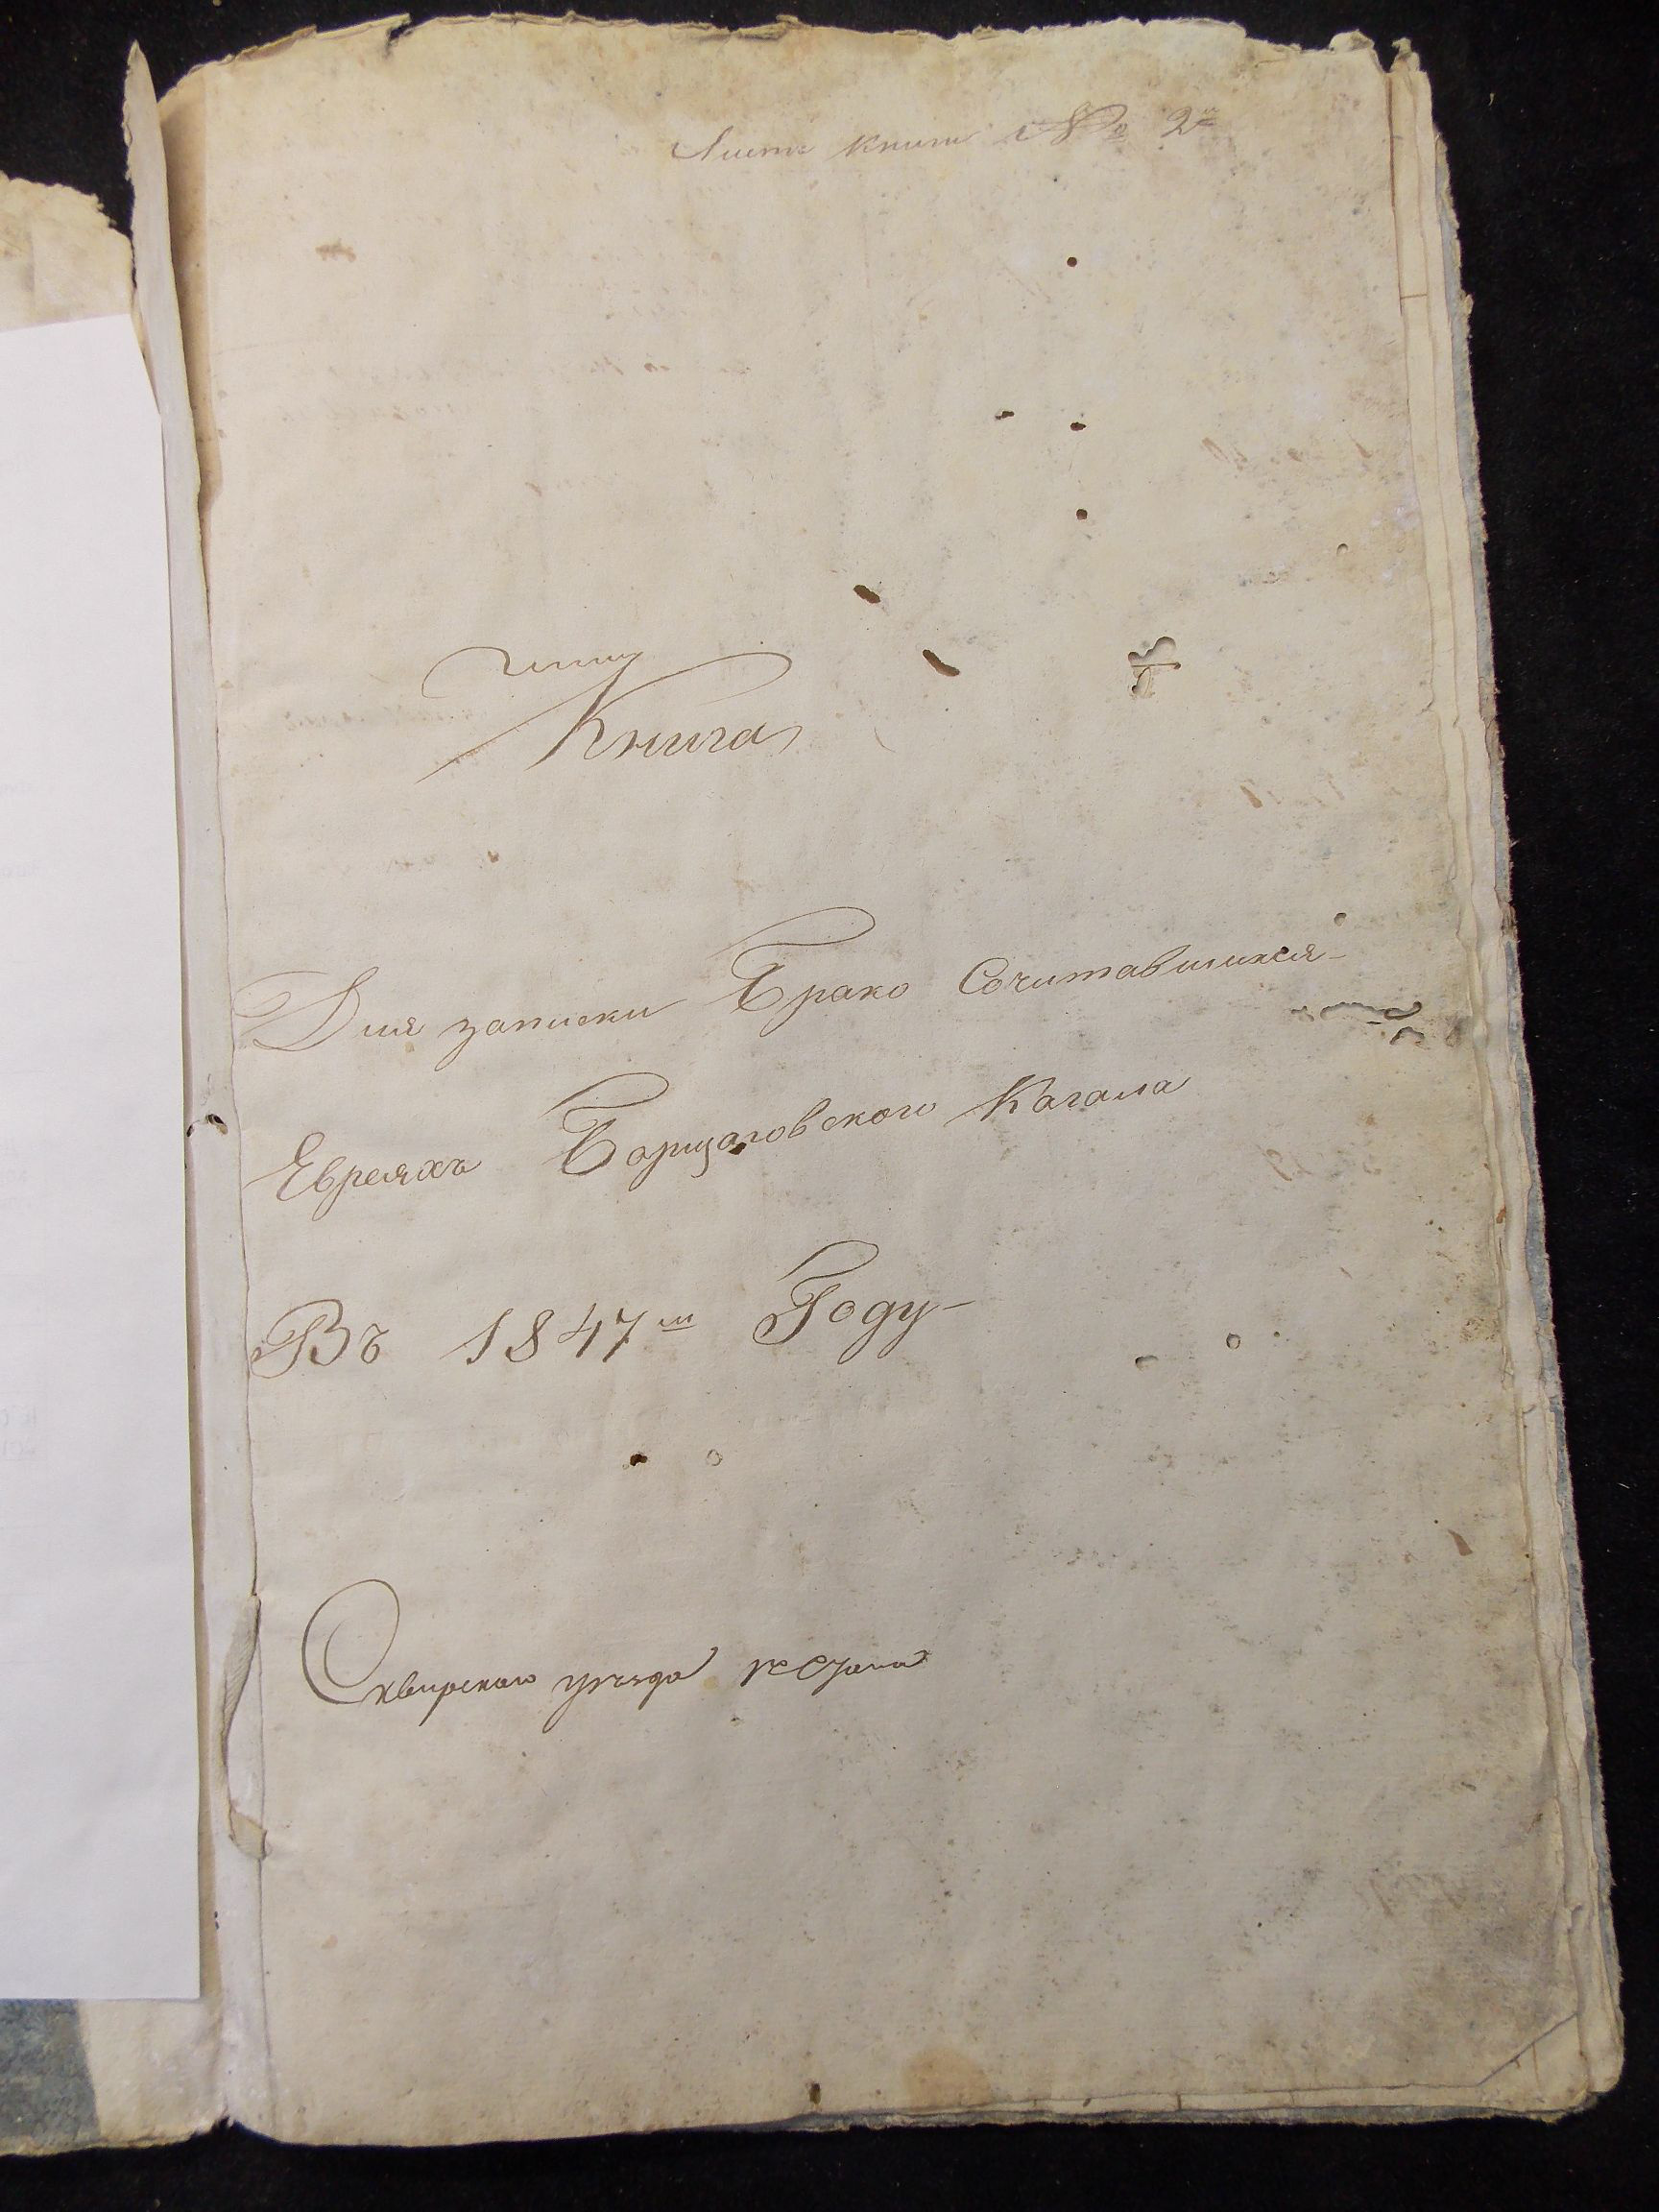 книги № 2й
Книга
Для записки Брако Сочитавшихся
Евреяхъ Борщаговского Кагала
Въ 1847м Году
Сквирского уѣзда 1го Стана